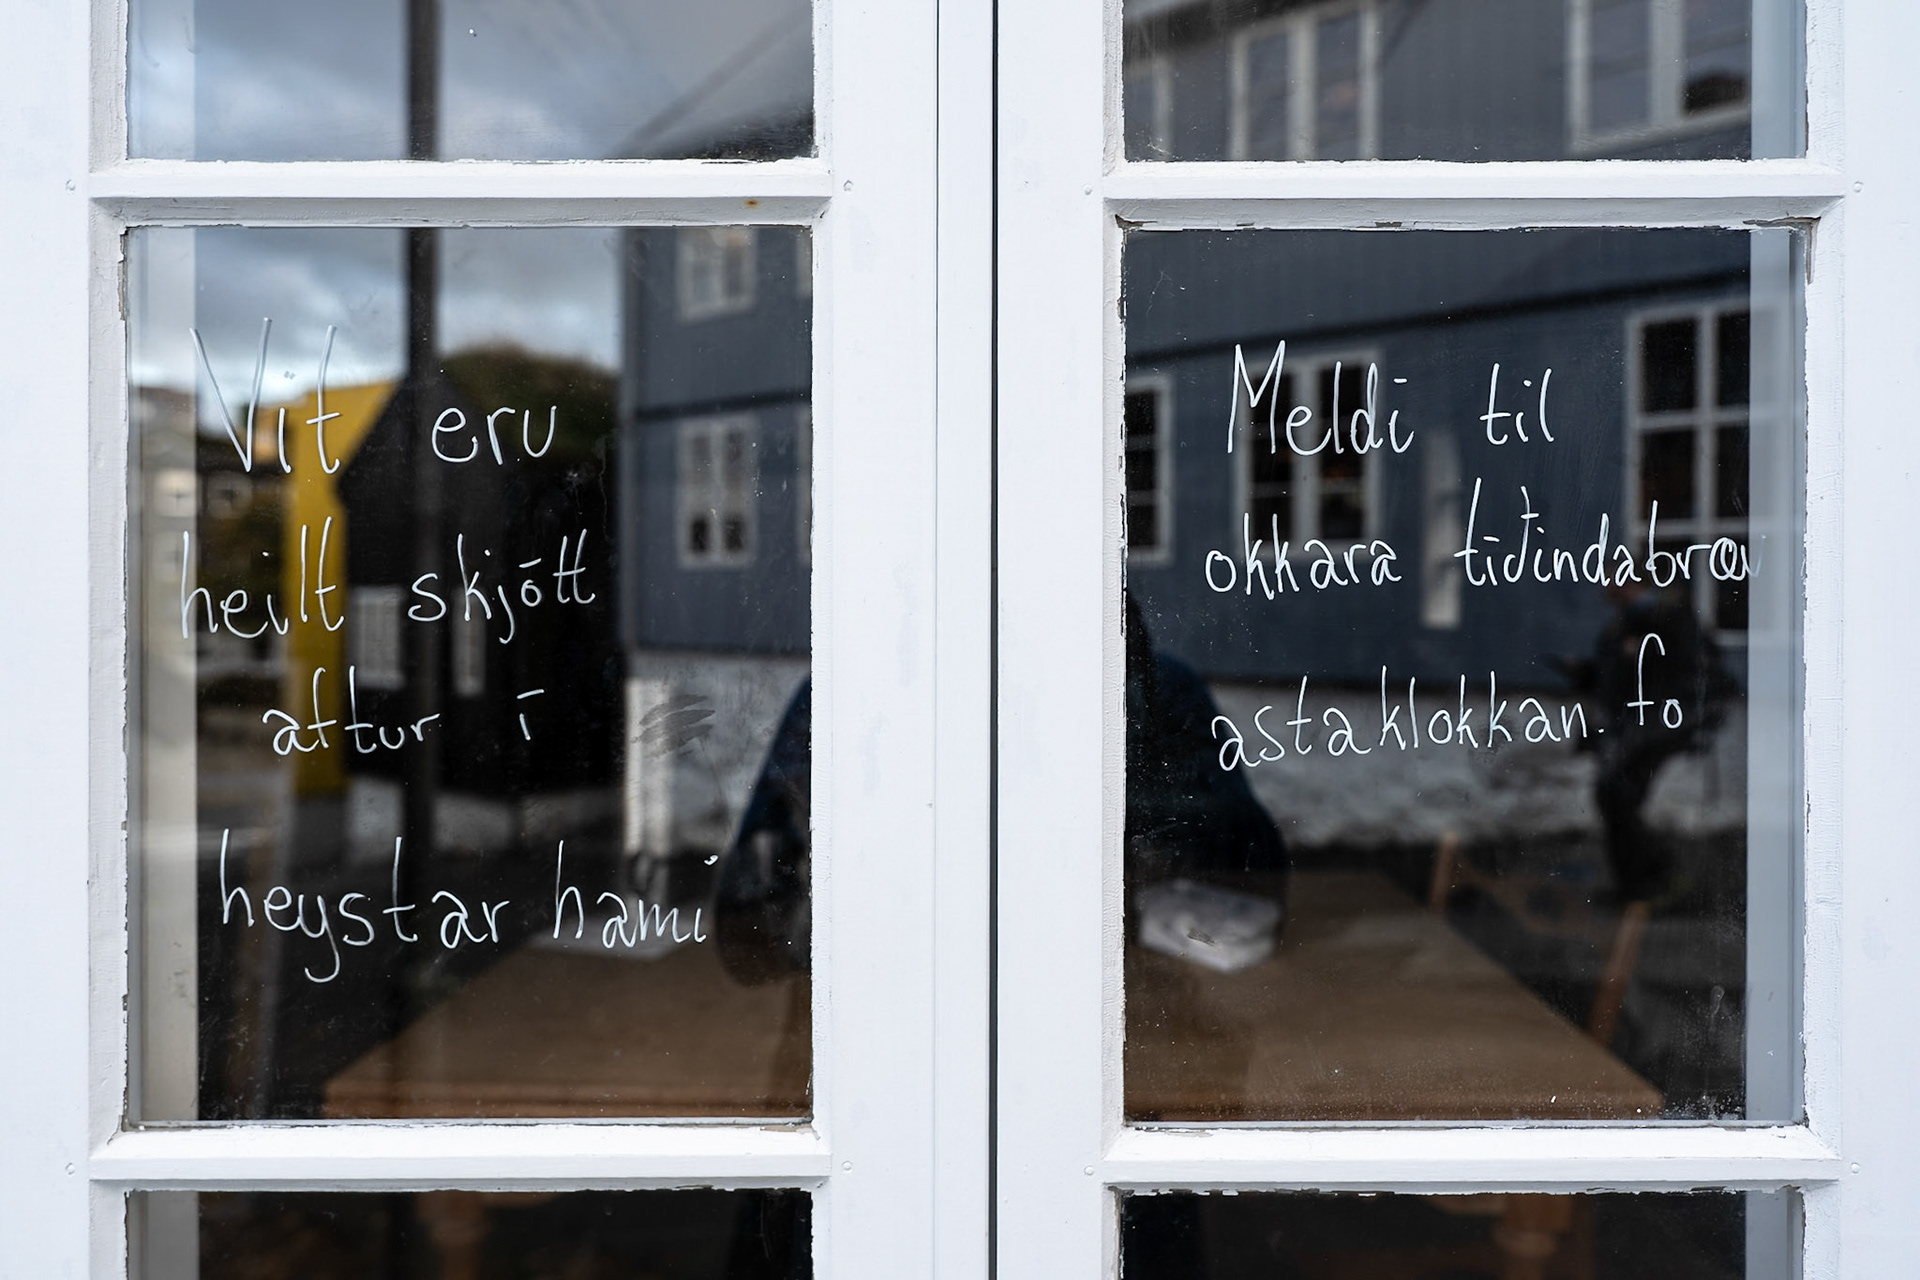 Vit eru
heilt skjótt
aftur í
heystar hami
Meldi til
okkara tíðindabræv
astaklokkan.fo